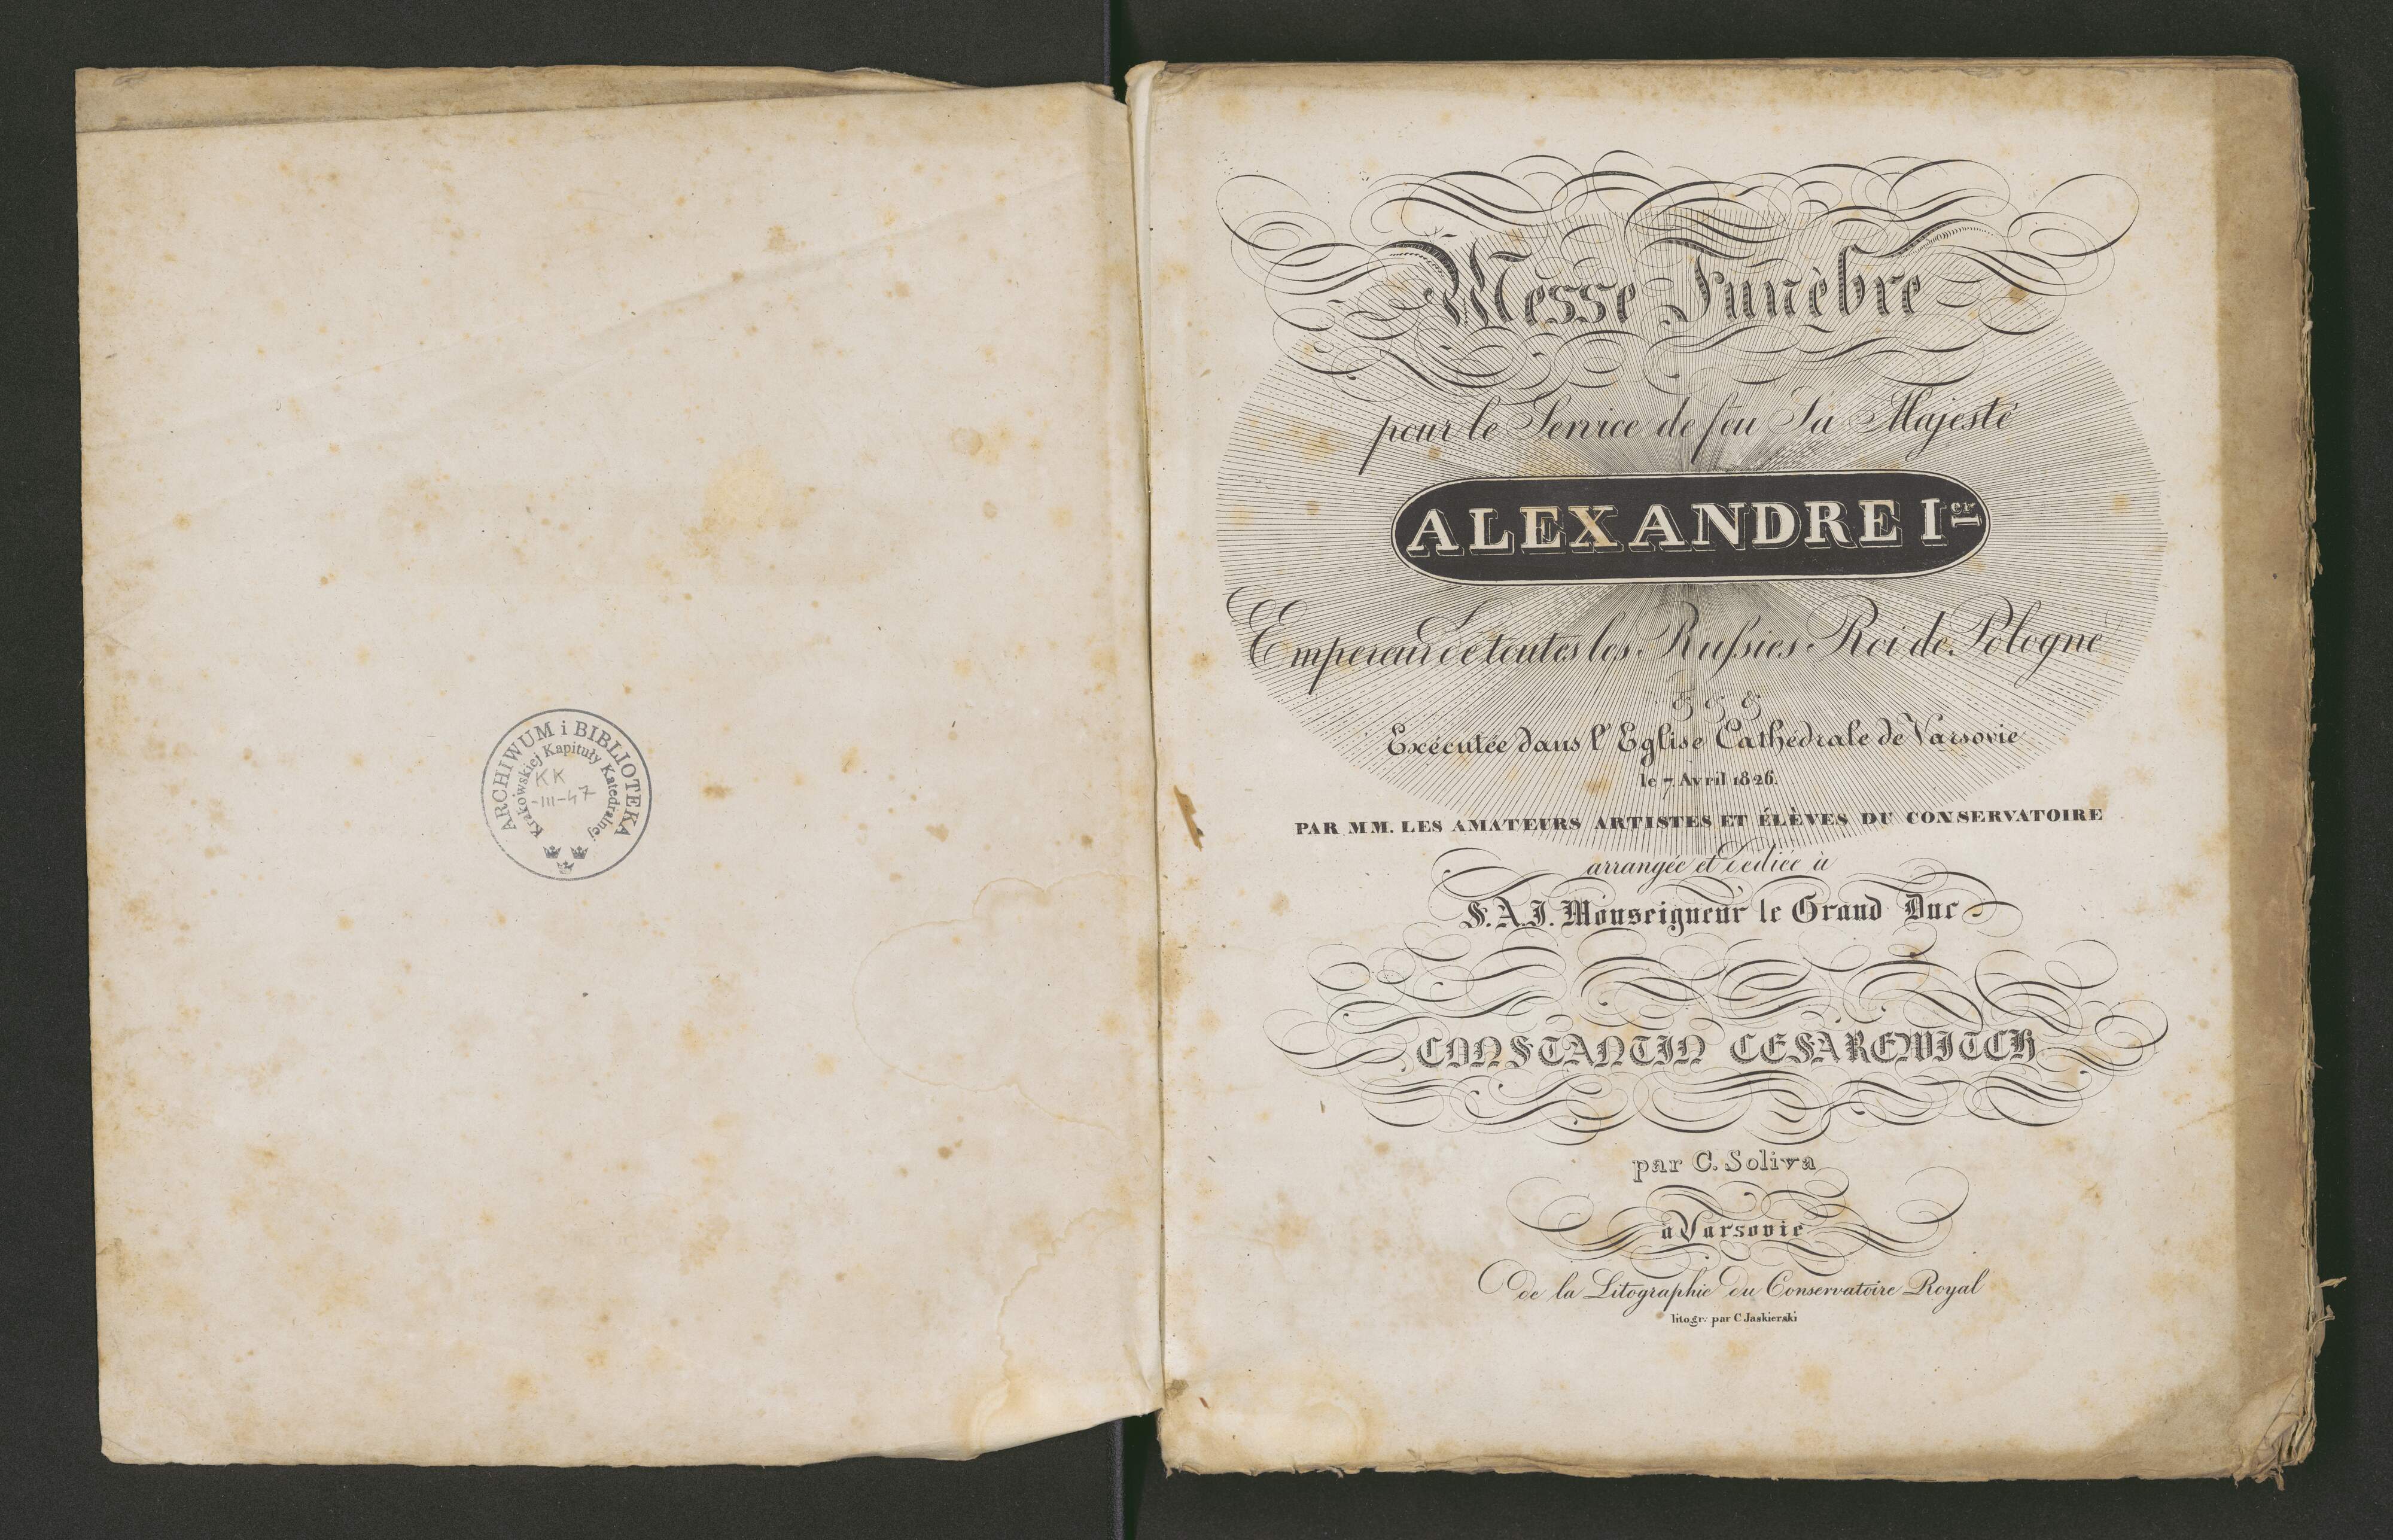 ARCHIWUM i BIBLIOTEKA
Krakowskiej Kapituły Katedralnej
KK
-III-47
Messe Funèbre
pour le Service de feu Sa Majesté
ALEXANDRE I.er
Empereur de toutes les Rufsies Roi de Pologne
& & &
Exécutée dans l'Eglise Cathedrale de Varsovie
le 7 Avril 1826.
PAR MM. LES AMATEURS ARTISTES ET ÉLÈVES DU CONSERVATOIRE
arrangée et Dediée à
S.A.J. Monseigneur le Grand Duc
CONSTANTIN CESAREWITCH
par C. Soliva
à Varsovie
de la Litographie du Conservatoire Royal
litogr: par C. Jaskierski